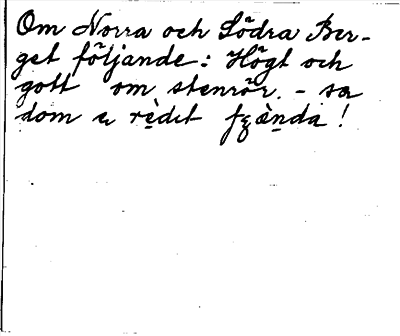 Om Norra och Södra Ber-
get följande: Högt och
gott om stenrör. - sa
dom